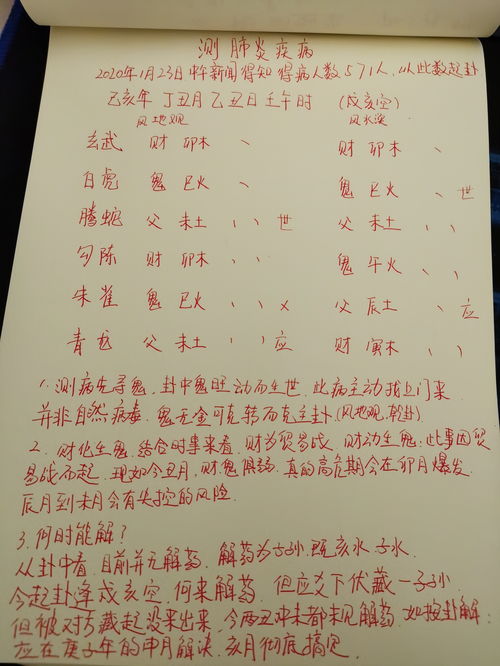 测肺炎疾病
2020年1月23日中午新闻得知 得病人数571人, 以此数起卦
己亥年 丁丑月 乙丑日 壬午时 (戌亥空)
风地观 风水涣
玄武 财 卯木 、 财 卯木 、
白虎 鬼 巳火 、 鬼 巳火 、世
腾蛇 父 未土 、、世 父 未土 、、
勾陈 财 卯木 、、 鬼 午火 、、
朱雀 鬼 巳火 、、 x 父 辰土 、应
青龙 父 未土 、、应 财 寅木 、、
1. 测病先寻鬼, 卦中鬼旺动而生世, 此病主动找上门来
并非自然病毒, 鬼无金可克转而克主卦(风地观, 乾卦)
2. 财化生鬼, 结合时事来看, 财为贸易战, 财动生鬼, 此事因贸
易战而起, 现如今丑月, 财鬼俱弱, 真的高危期会在卯月爆发,
辰月到未月会有失控的风险.
3. 何时能解?
从卦中看, 目前并无解药, 解药为子孙, 既亥水 子水,
今起卦逢戌亥空, 何来解药, 但应爻下伏藏一子孙
但被对方藏起没来出来, 今两丑冲未都未见解药, 如按卦解:
应在庚子年的申月解决, 亥月彻底搞定